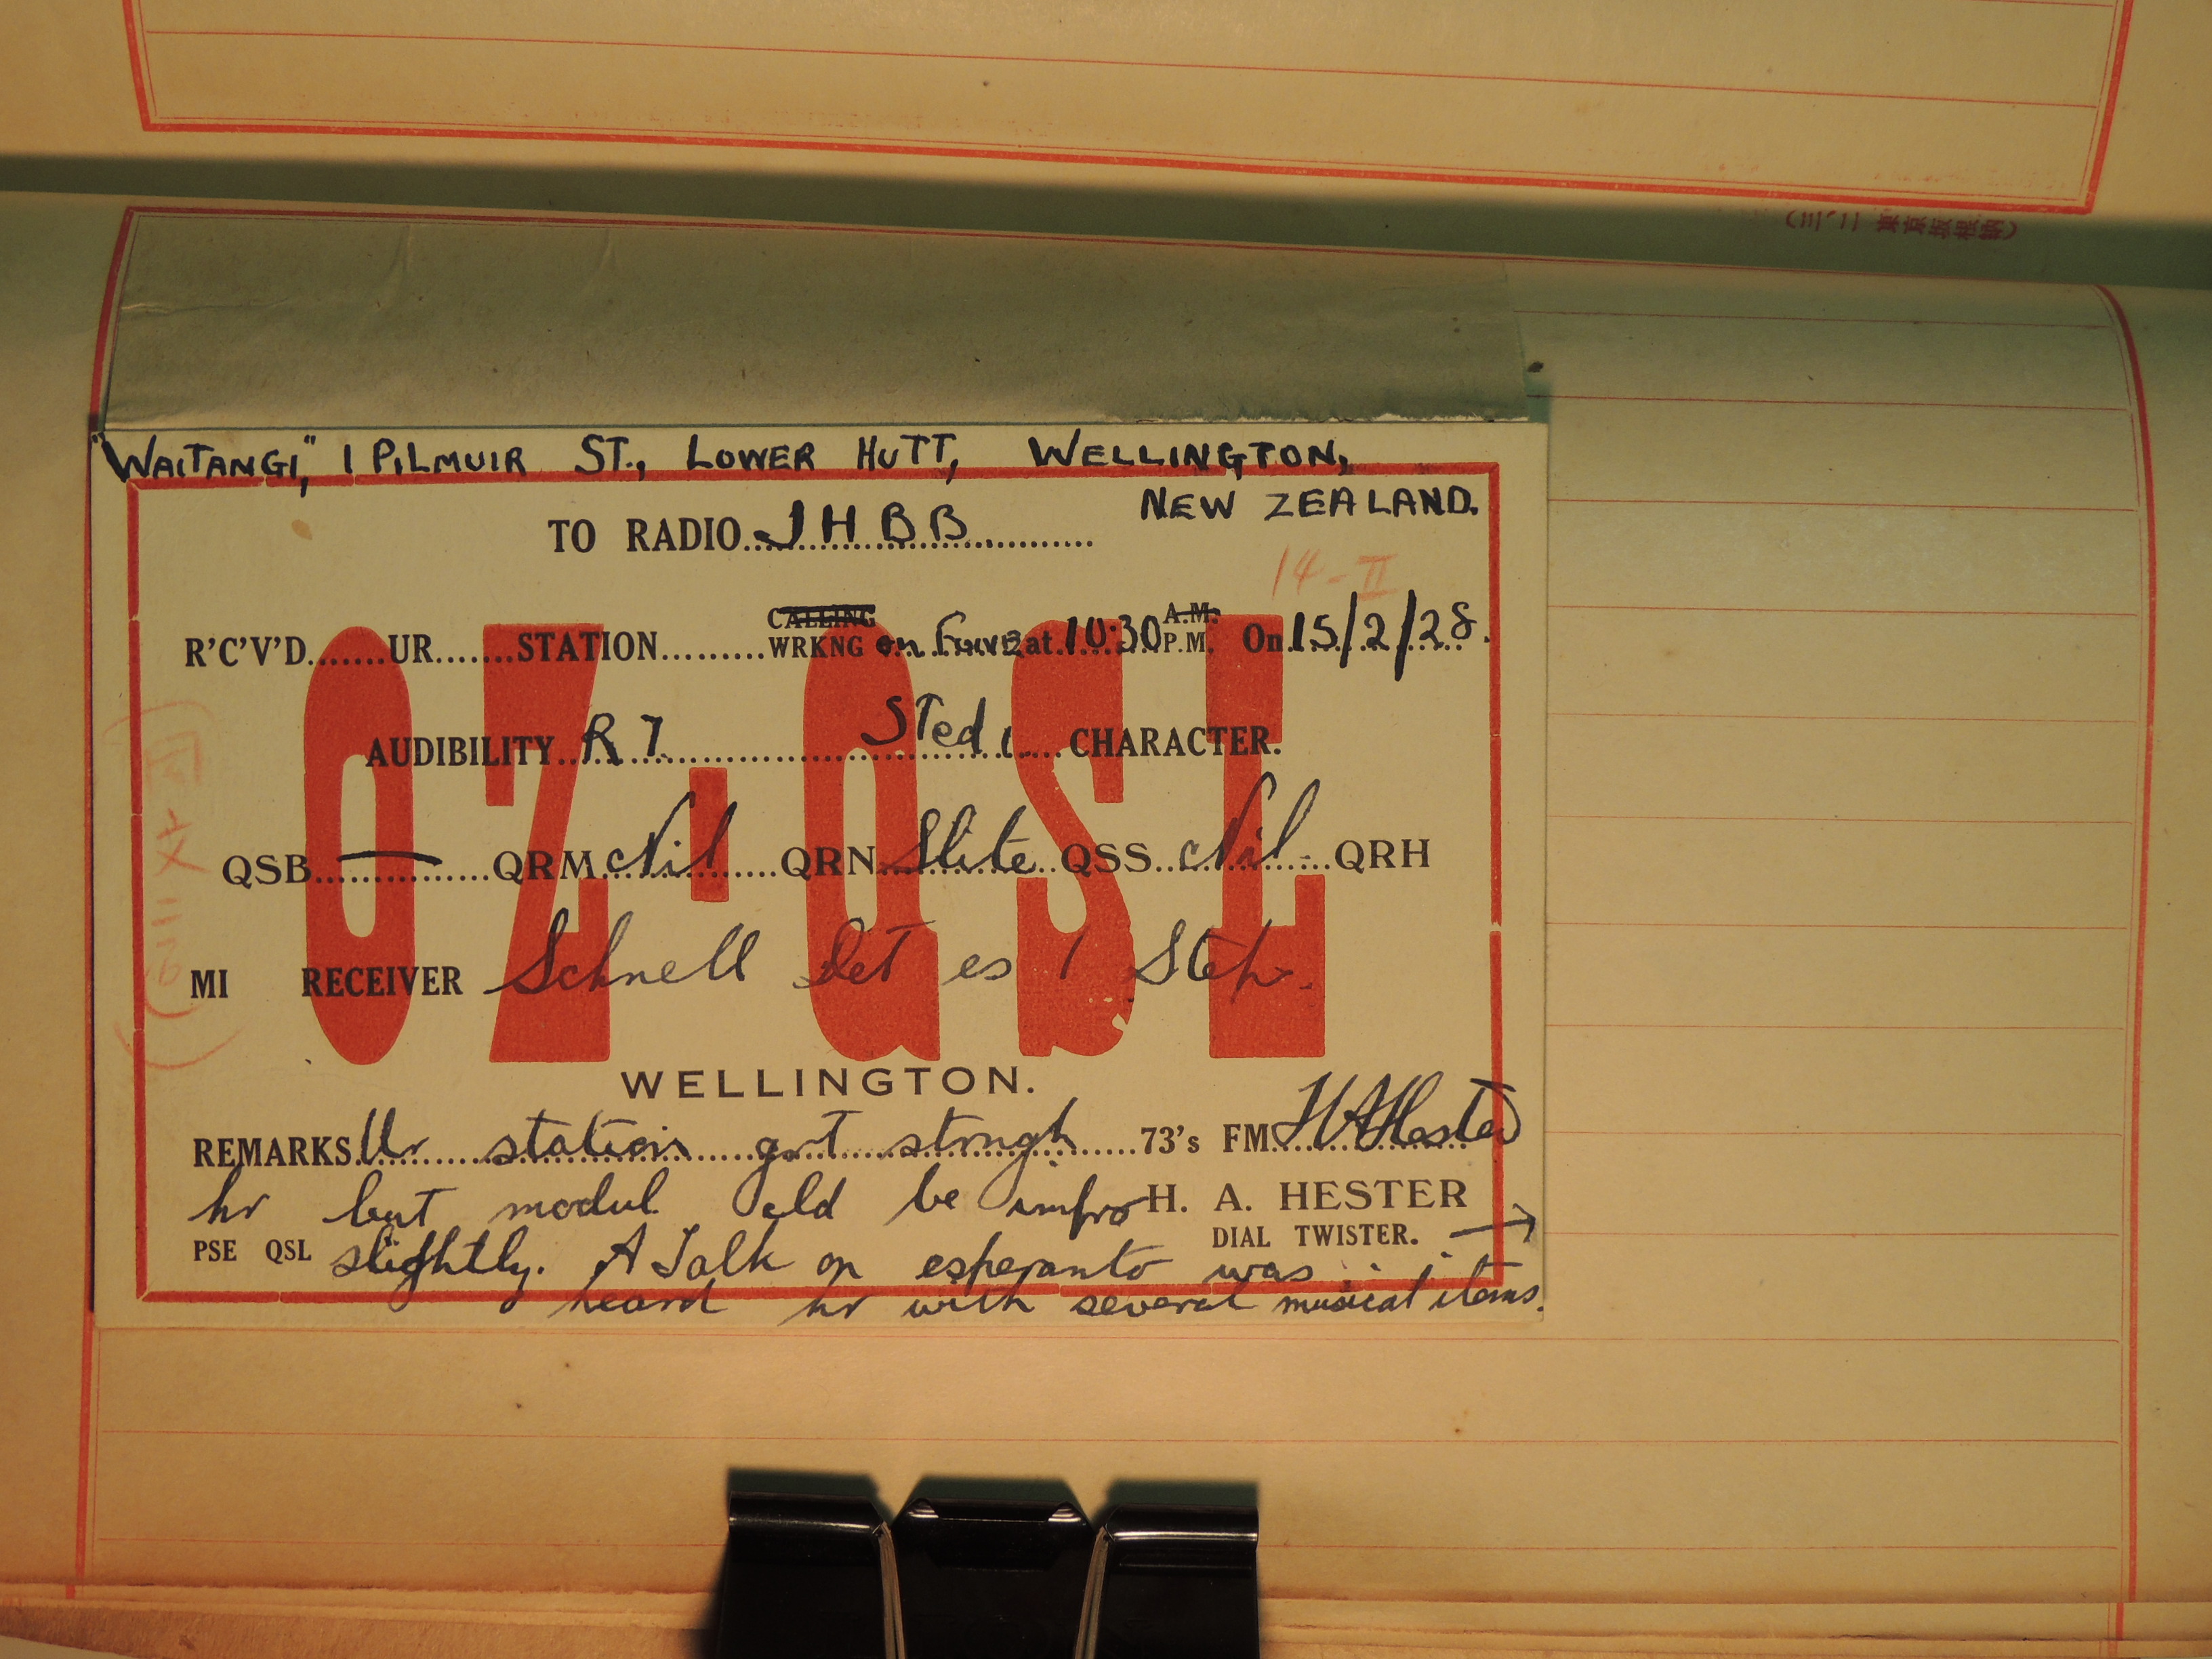 (三、二 東京坂根納)
"WAITANGI," 1 PILMUIR ST., LOWER HUTT, WELLINGTON,
NEW ZEALAND.
TO RADIO JHBB
14-II
R'C'V'D UR STATION CALLING WRKNG on at 10:30 A.M. P.M. On 15/2/28.
AUDIBILITY R7 STedi CHARACTER.
QSB — QRM Nil QRN Slite QSS Nil QRH
MI RECEIVER Schnell Det es 1 Step.
OZ-QSL
WELLINGTON.
REMARKS Ur station 73's FM HAHester
hr but modul cld be impro H. A. HESTER
DIAL TWISTER. →
PSE QSL slightly. A Talk on esperanto was
heard hr with several musical items.